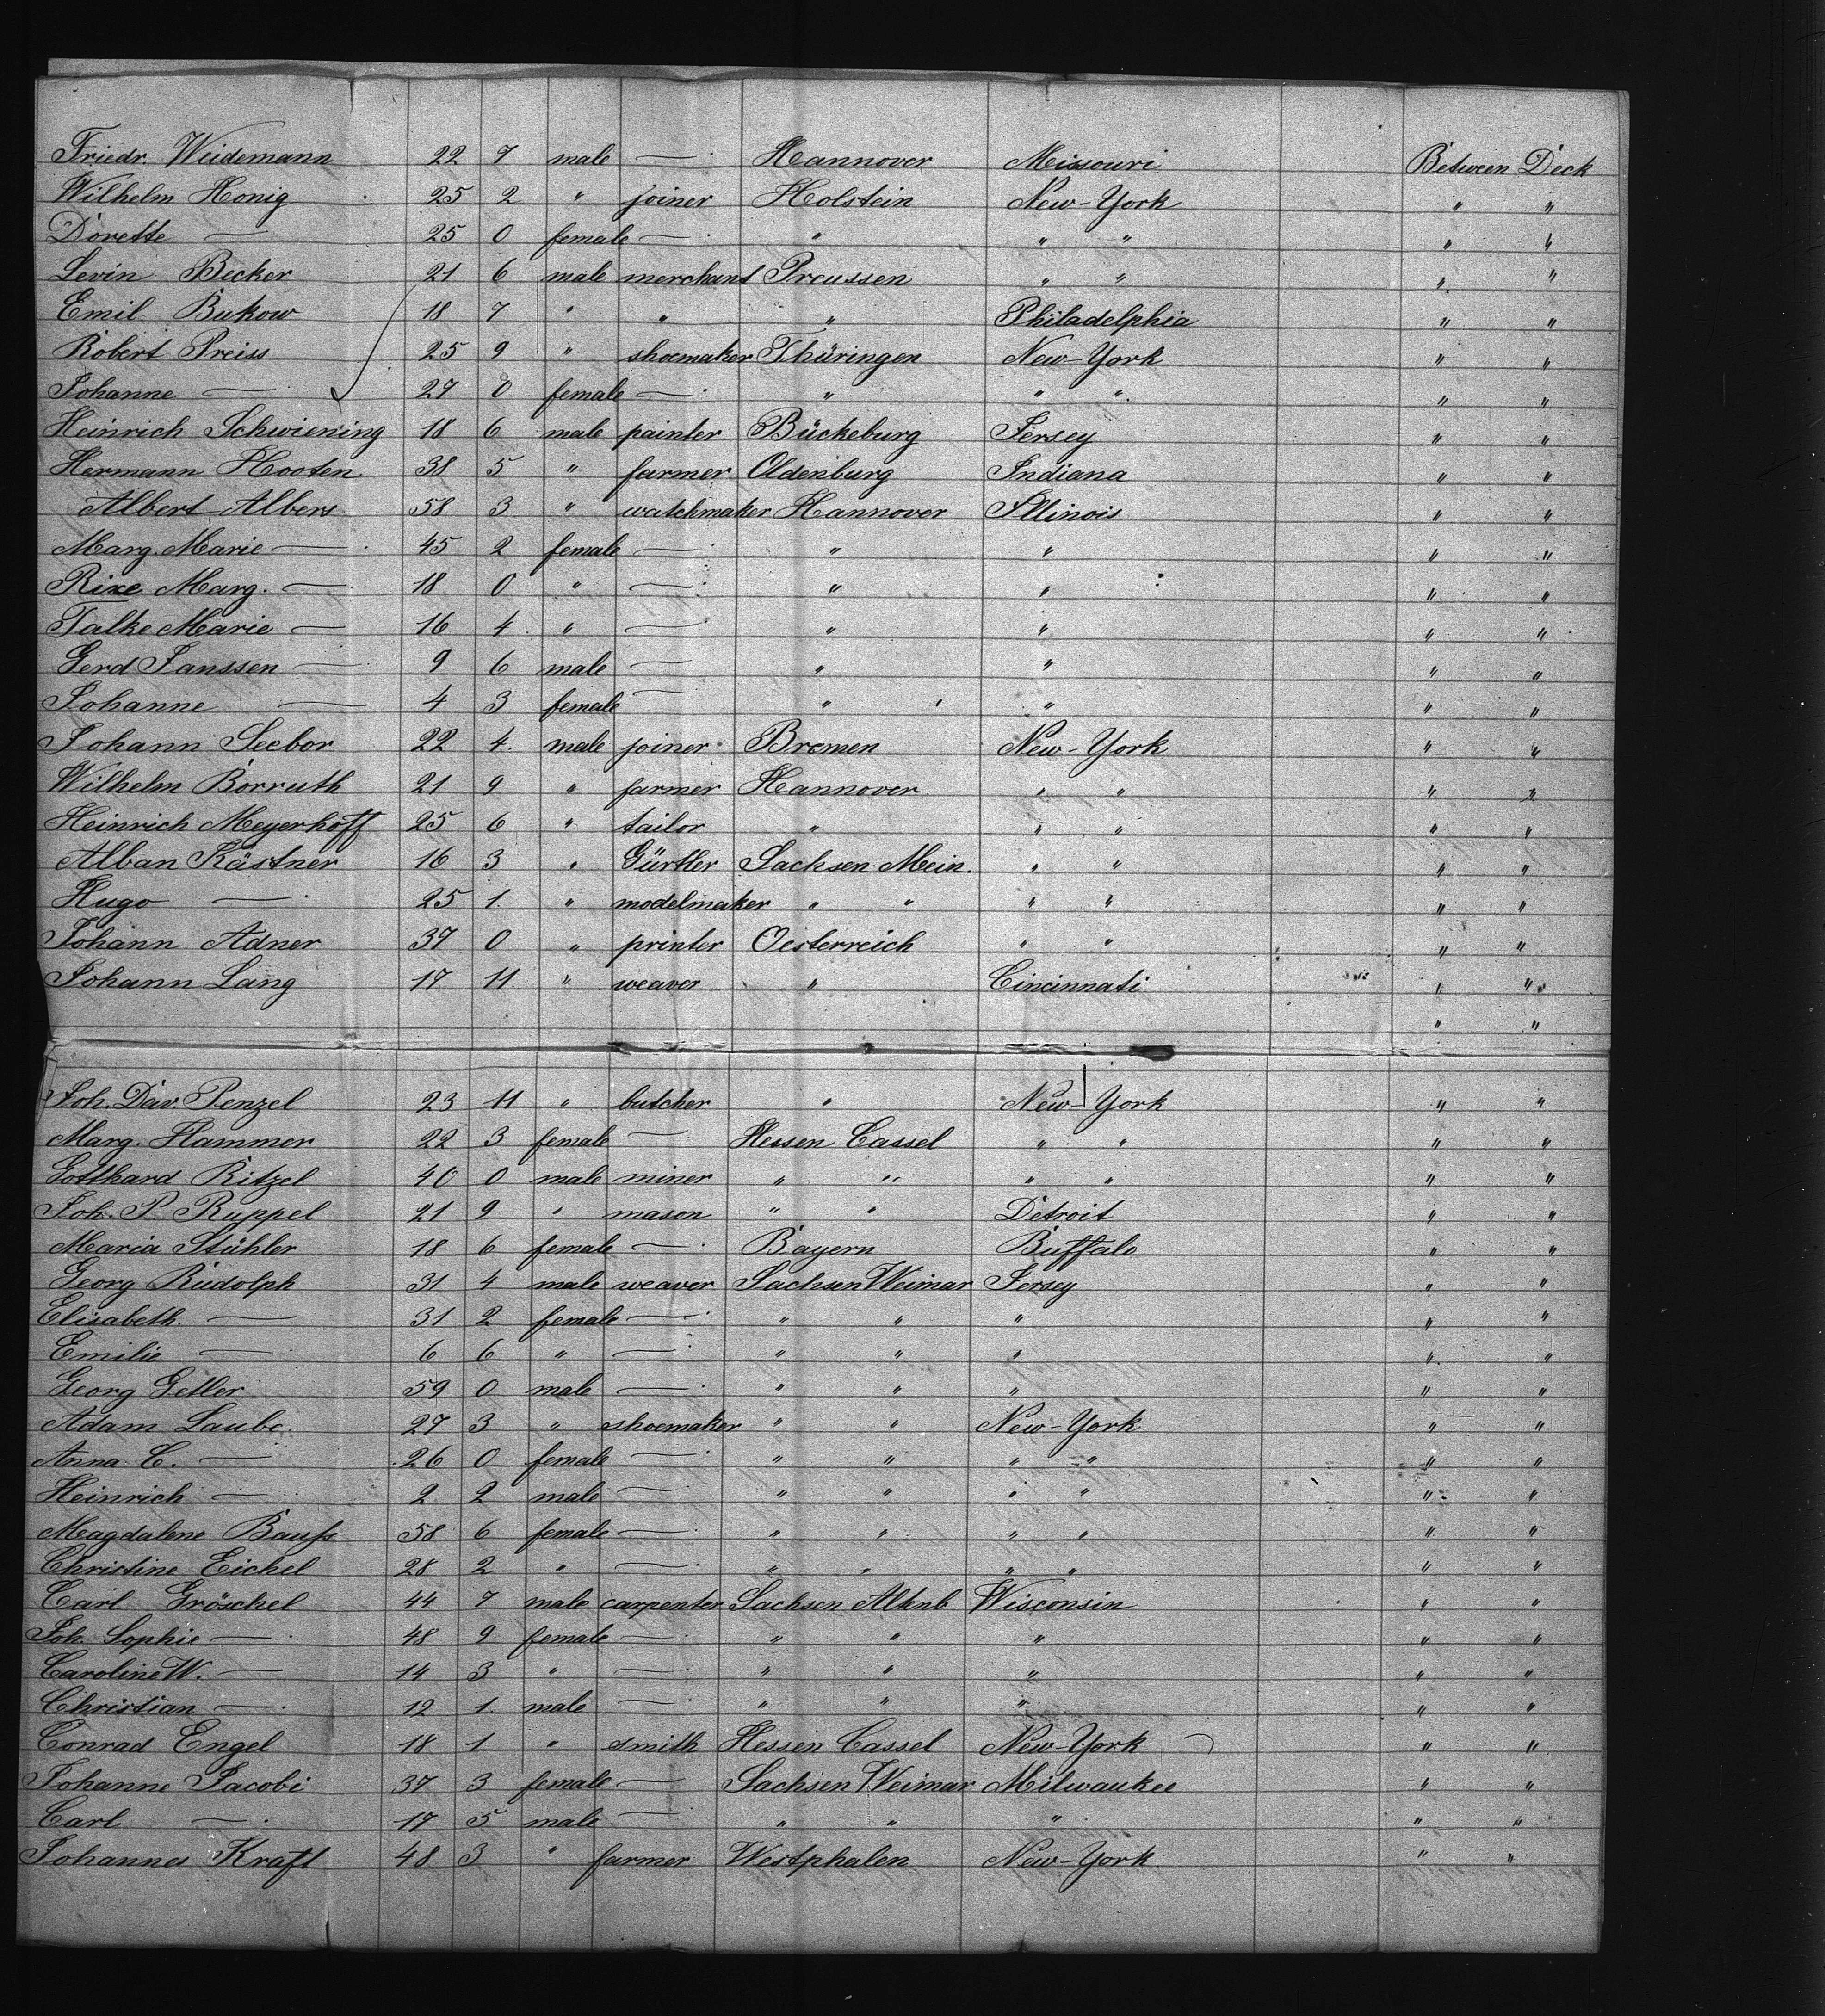 Friedr. Weidemann 22 7 male — Hannover Missouri Between Deck
Wilhelm Honig 25 2 " joiner Holstein New-York " "
Dorette — 25 0 female — " " " " "
Levin Becker 21 6 male merchant Preussen " " " "
Emil Bukow 18 7 " " " Philadelphia " "
Robert Preiss 25 9 " shoemaker Thüringen New-York " "
Johanne — 27 0 female — " " " " "
Heinrich Schwiening 18 6 male painter Bückeburg Jersey " "
Hermann Hooten 38 5 " farmer Oldenburg Indiana " "
Albert Albers 58 3 " watchmaker Hannover Illinois " "
Marg. Marie — 45 2 female — " " " "
Rixe Marg. — 18 0 " — " " " "
Talke Marie — 16 4 " — " " " "
Gerd Janssen — 9 6 male — " " " "
Johanne — 4 3 female — " " " "
Johann Seebor 22 4 male joiner Bremen New-York " "
Wilhelm Borruth 21 9 " farmer Hannover " " " "
Heinrich Meyerhoff 25 6 " tailor " " " " "
Alban Kästner 16 3 " Gürtler Sachsen Mein. " " " "
Hugo — 25 1 " modelmaker " " " " " "
Johann Adner 37 0 " printer Oesterreich " " " "
Johann Lang 17 11 " weaver " Cincinnati " "
" "
Joh. Dav. Penzel 23 11 " butcher " New-York " "
Marg. Hammer 22 3 female — Hessen Cassel " " " "
Gotthard Ritzel 40 0 male miner " " " " " "
Joh. P. Ruppel 21 9 " mason " " Detroit " "
Maria Stühler 18 6 female — Bayern Buffalo " "
Georg Rudolph 31 4 male weaver Sachsen Weimar Jersey " "
Elisabeth — 31 2 female — " " " " "
Emilie — 6 6 " — " " " " "
Georg Geller 59 0 male — " " " " "
Adam Laube 27 3 " shoemaker " " New-York " "
Anna C. — 26 0 female — " " " " " "
Heinrich — 2 2 male — " " " " " "
Magdalene Bauß 58 6 female — " " " " " "
Christine Eichel 28 2 " — " " " " " "
Carl Gröschel 44 7 male carpenter Sachsen Altenb Wisconsin " "
Joh. Sophie — 48 9 female — " " " " "
Caroline W. — 14 3 " — " " " " "
Christian — 12 1 male — " " " " "
Conrad Engel 18 1 " smith Hessen Cassel New-York " "
Johanne Jacobi 37 3 female — Sachsen Weimar Milwaukee " "
Carl — 17 5 male — " " " " "
Johannes Kraft 48 3 " farmer Westphalen New-York " "